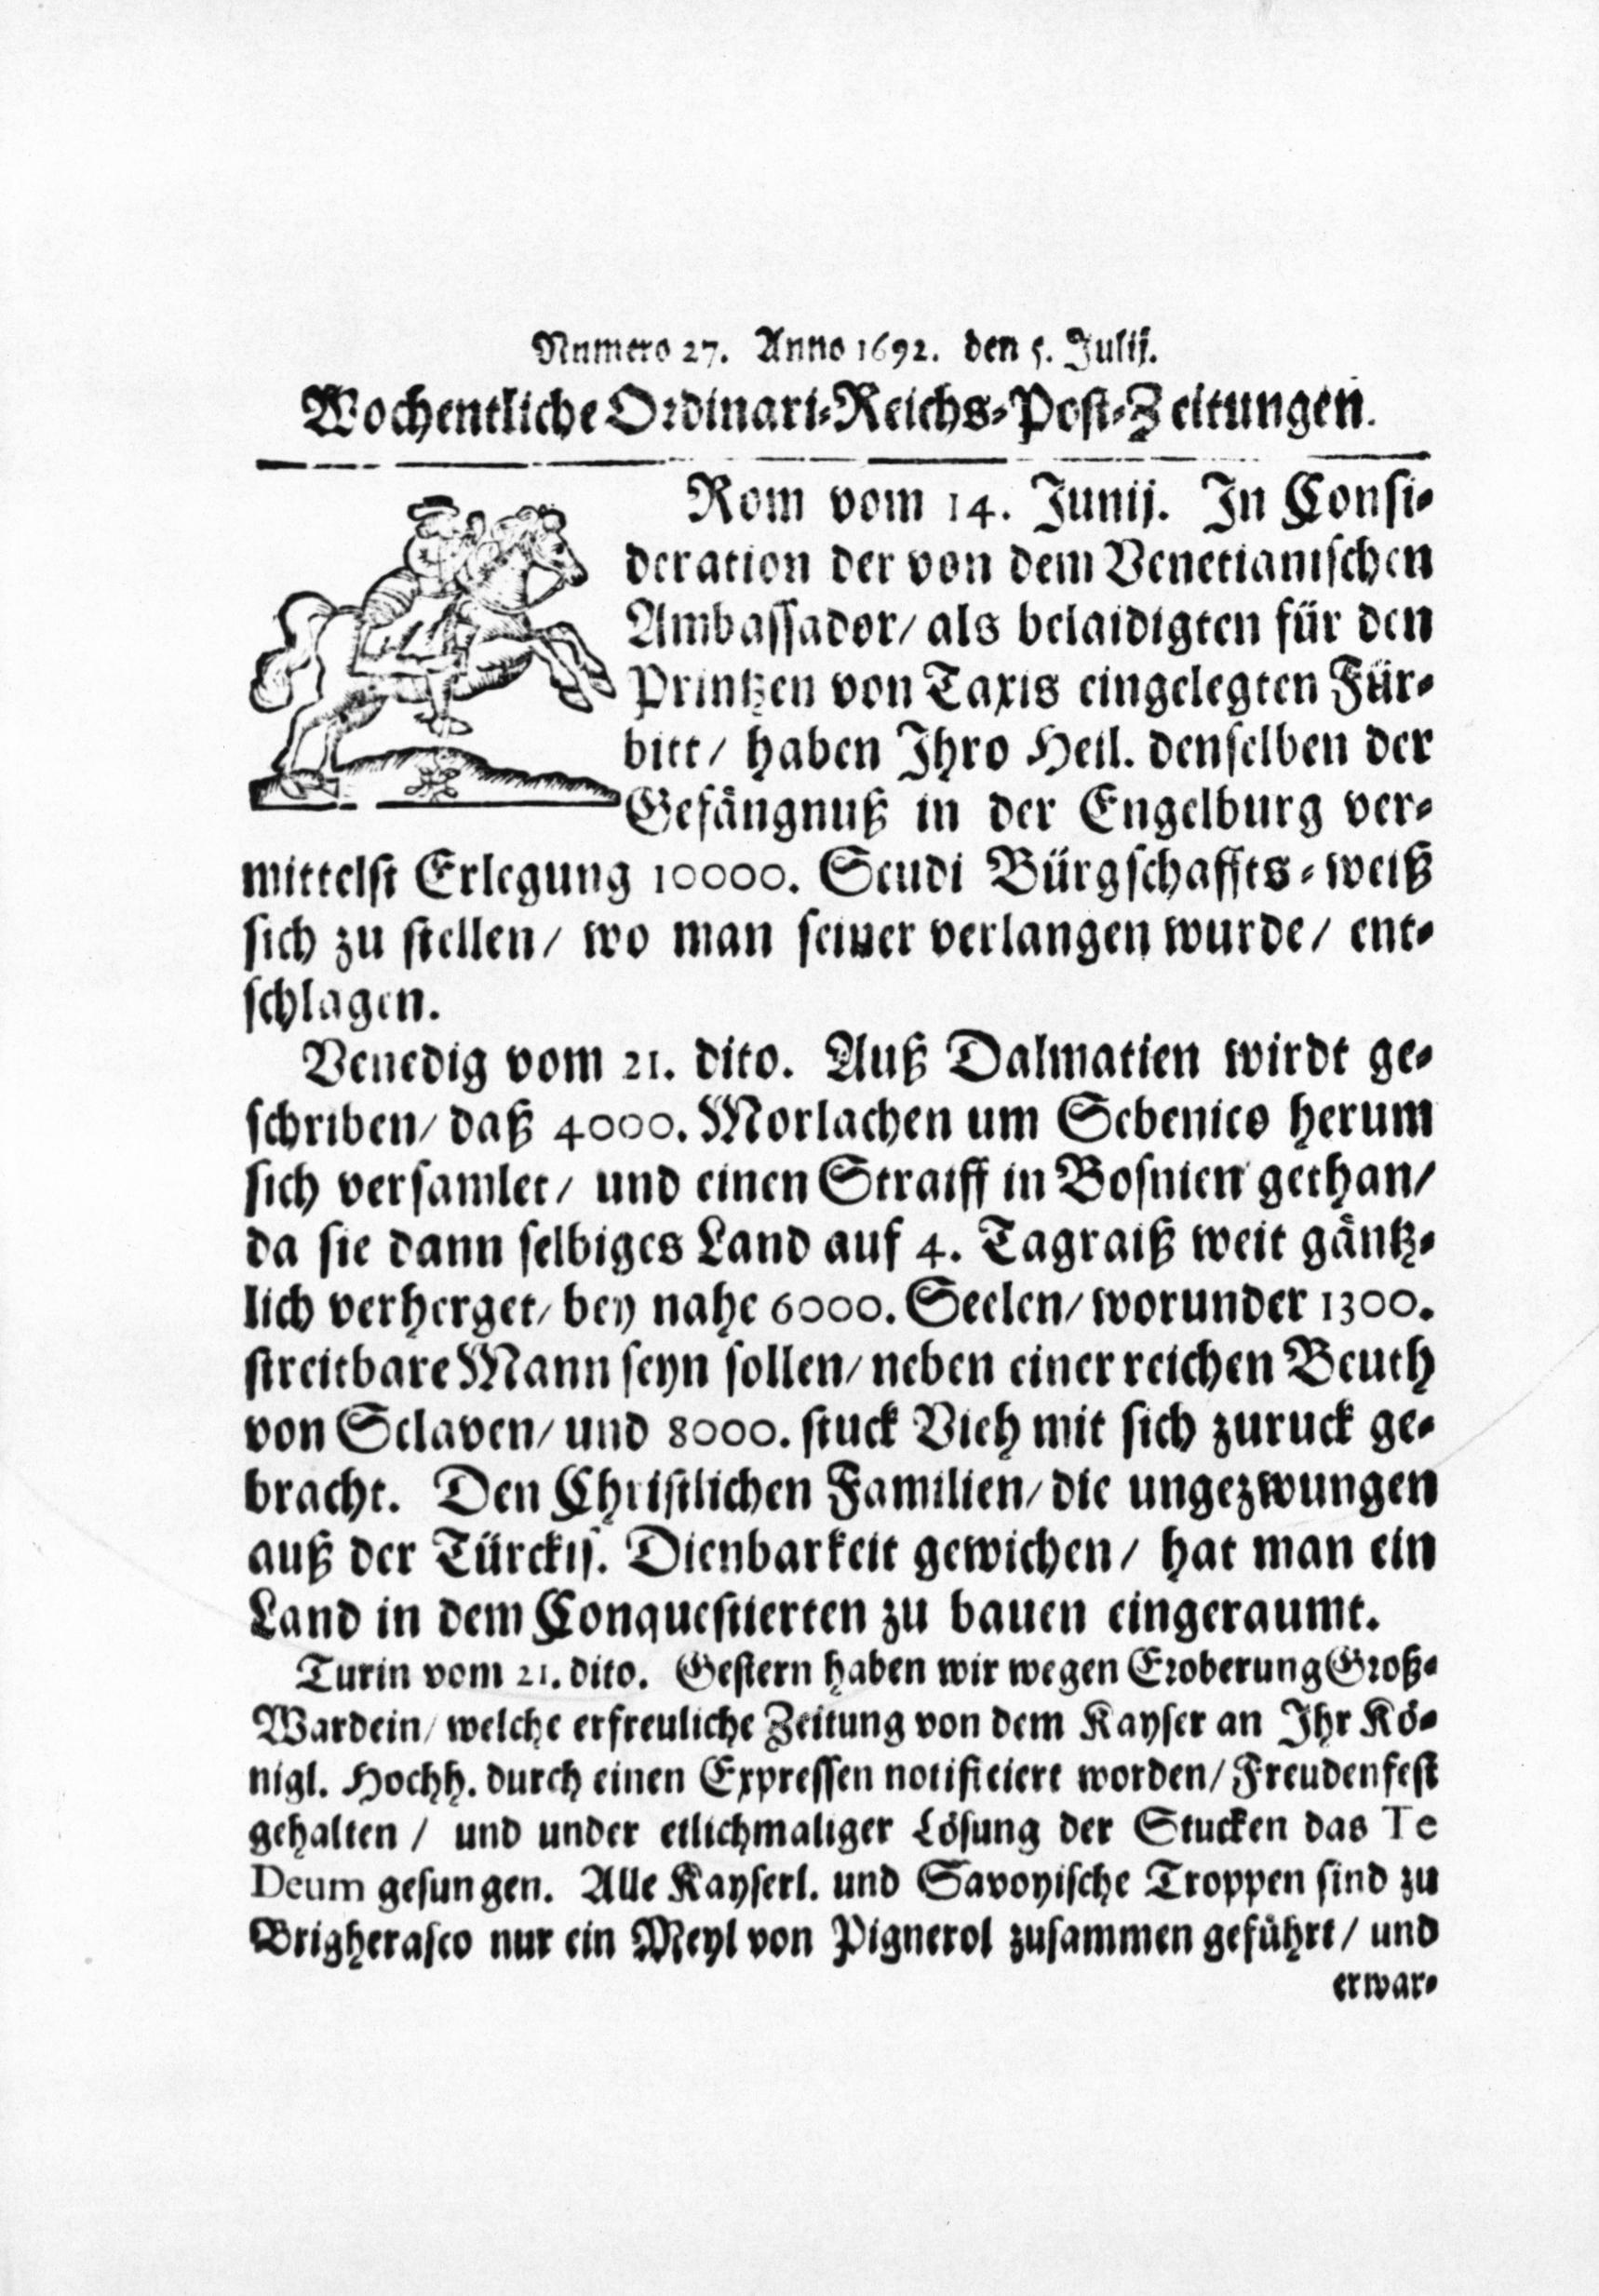 Numero 27. Anno 1692. den 5. Julij.
Wochentliche Ordinari-Reichs-Post-Zeitungen.
Rom vom 14. Junij. In Consi-
deration der von dem Venetianischen
Ambassador/ als belaidigten für den
Printzen von Taxis eingelegten Für-
bitt/ haben Ihro Heil. denselben der
Gefängnuß in der Engelburg ver-
mittelst Erlegung 10000. Scudi Bürgschaffts-weiß
sich zu stellen/ wo man seiner verlangen wurde/ ent-
schlagen.
Venedig vom 21. dito. Auß Dalmatien wirdt ge-
schriben/ daß 4000. Morlachen um Sebenico herum
sich versamlet/ und einen Straiff in Bosnien gethan/
da sie dann selbiges Land auf 4. Tagraiß weit gäntz-
lich verherget/ bey nahe 6000. Seelen/ worunder 1300.
streitbare Mann seyn sollen/ neben einer reichen Beuth
von Sclaven/ und 8000. stuck Vieh mit sich zuruck ge-
bracht. Den Christlichen Familien/ die ungezwungen
auß der Türckis. Dienbarkeit gewichen/ hat man ein
Land in dem Conquestierten zu bauen eingeraumt.
Turin vom 21. dito. Gestern haben wir wegen Eroberung Groß-
Wardein/ welche erfreuliche Zeitung von dem Kayser an Ihr Kö-
nigl. Hochh. durch einen Expressen notificiert worden/ Freudenfest
gehalten / und under etlichmaliger Lösung der Stucken das Te
Deum gesungen. Alle Kayserl. und Savoyische Troppen sind zu
Brigherasco nur ein Meyl von Pignerol zusammen geführt/ und
erwar-